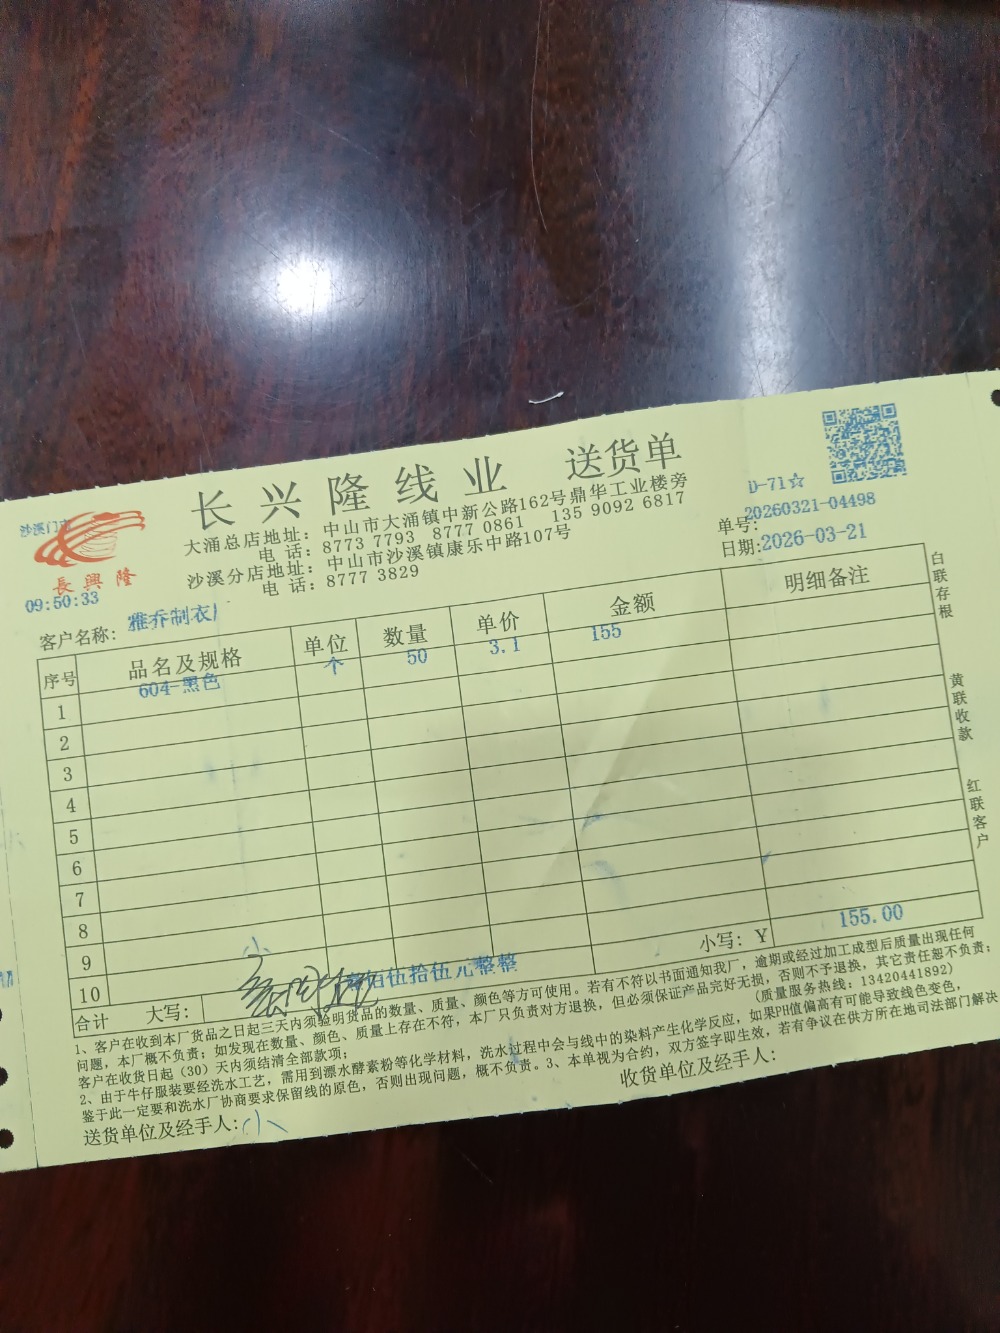 长兴隆线业 送货单
D-71☆
沙溪门市
長興隆
大涌总店地址: 中山市大涌镇中新公路162号鼎华工业楼旁
电 话: 8773 7793 8777 0861 135 9092 6817
沙溪分店地址: 中山市沙溪镇康乐中路107号
电 话: 8777 3829
单号: 20260321-04498
日期:2026-03-21
09:50:33
客户名称: 雅乔制衣厂
序号 品名及规格 单位 数量 单价 金额 明细备注
1 604-黑色 个 50 3.1 155
2
3
4
5
6
7
8
9
10
合计 大写: 壹佰伍拾伍元整整 小写: Y 155.00
1、客户在收到本厂货品之日起三天内须验明货品的数量、质量、颜色等方可使用。若有不符以书面通知我厂,逾期或经过加工成型后质量出现任何
问题,本厂概不负责;如发现在数量、颜色、质量上存在不符,本厂只负责对方退换,但必须保证产品完好无损,否则不予退换,其它责任恕不负责;
客户在收货日起(30)天内须结清全部款项; (质量服务热线:13420441892)
2、由于牛仔服装要经洗水工艺,需用到漂水酵素粉等化学材料,洗水过程中会与线中的染料产生化学反应,如果PH值偏高有可能导致线色变色,
鉴于此一定要和洗水厂协商要求保留线的原色,否则出现问题,概不负责。3、本单视为合约,双方签字即生效,若有争议在供方所在地司法部门解决
送货单位及经手人: 收货单位及经手人:
白联存根
黄联收款
红联客户